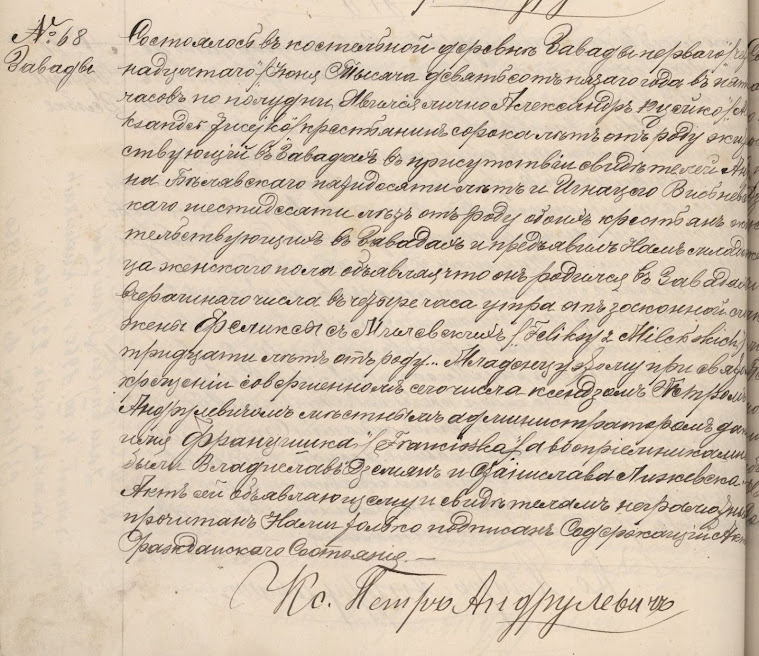 № 68
Завады
Состоялось въ костельной деревнѣ Завады перваго /
надцатаго / Іюня Тысяча девятьсотъ пятаго года въ пять
часовъ по полудни. Явился лично Александръ Юсейко /
ksander Jusejko / крестьянинъ сорока лѣтъ отъ роду жи
ствующій въ Завадахъ въ присутствіи свидѣтелей
на Бѣлавскаго пятидесяти лѣтъ и Игнацего Висьнев
скаго шестидесяти лѣтъ отъ роду обоихъ крестьянъ
тельствующихъ въ Завадахъ и предъявилъ Намъ младен
ца женскаго пола объявляя что онъ родился въ Завадахъ
вчерашняго числа въ четыре часа утра отъ законной его
жены Феликсы съ Милевскихъ / Feliksy z Milewskich /
тридцати лѣтъ отъ роду. Младенцу этому при святомъ
крещеніи совершенномъ сего числа ксендзомъ Петромъ
Андрулевичомъ мѣстнымъ администраторомъ дано
имя Францишка / Franciszka /, а воспріемниками
были Владиславъ и Станислава
Актъ сей объявляющему и свидѣтелямъ неграмотнымъ
прочитанъ Нами только подписанъ. Содержащій Акты
Гражданскаго Состоянія. —
Кс. Петръ Андрулевичъ